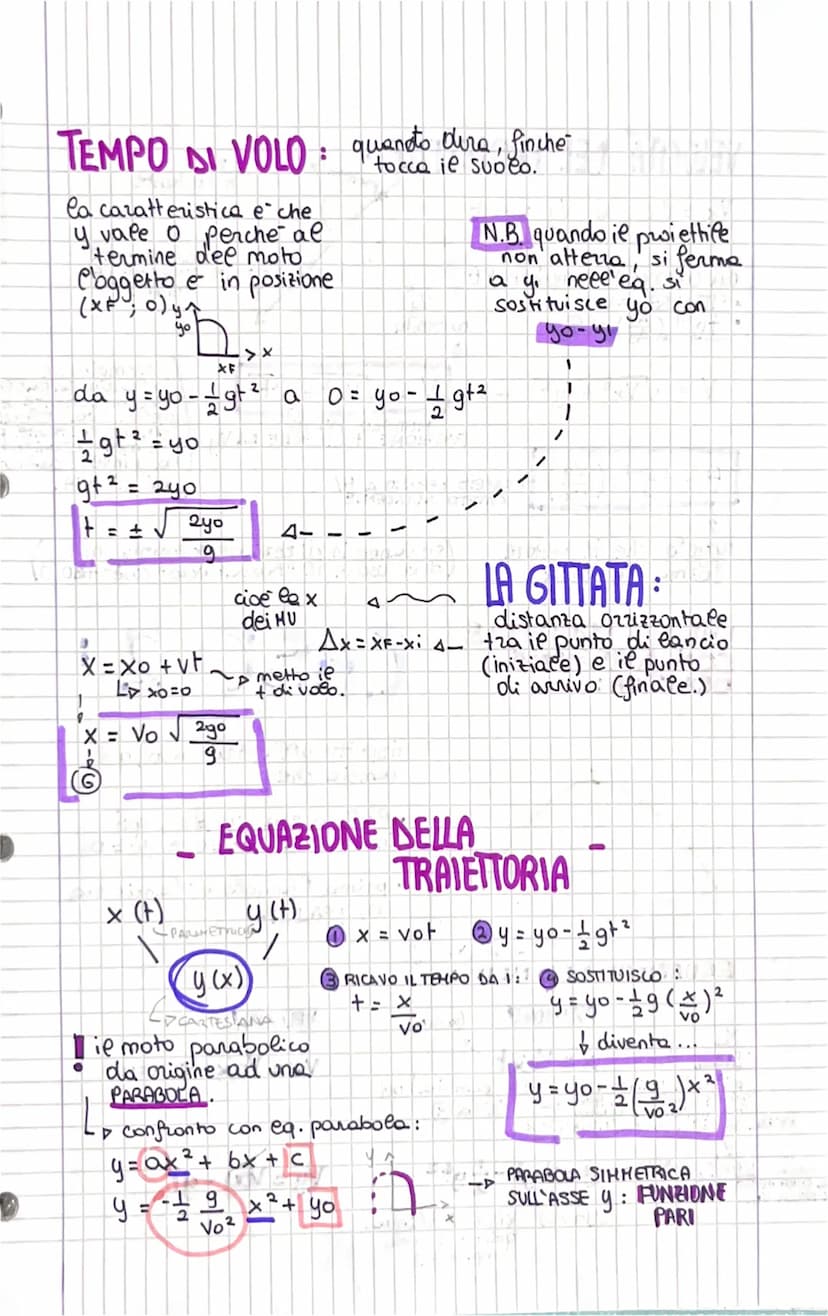 TEMPO DI VOLO : quanto dura, finchè
tocca il suolo.
la caratteristica è che
y vale 0 perchè al
termine del moto
l'oggetto è in posizione
(xF ; 0)
y
yo
xF
x
N.B. quando il proiettile
non atterra, si ferma
a y1 nell'eq. si
sostituisce yo con
yo-y1
da y = yo - 1/2 gt² a 0 = yo - 1/2 gt²
1/2 gt² = yo
gt² = 2yo
t = ± √(2yo/g)
LA GITTATA :
distanza orizzontale
tra il punto di lancio
(iniziale) e il punto
di arrivo (finale.)
cioè la x
dei MU
Δx = xF-xi
x = xo + vt
xo=0
metto il
t di volo.
x = Vo √(2go/g)
G
- EQUAZIONE DELLA
TRAIETTORIA -
x (t) y (t)
PARAMETRICA
y (x)
CARTESIANA
① x = vot ② y = yo - 1/2 gt²
③ RICAVO IL TEMPO DA 1:
t = x/Vo
④ SOSTITUISCO :
y = yo - 1/2 g (x/vo)²
↓ diventa ...
y = yo - 1/2 (g/vo²) x²
! il moto parabolico
da origine ad una
PARABOLA.
confronto con eq. parabola :
y = ax² + bx + c
y = -1/2 g/Vo² x² + yo
y
x
PARABOLA SIMMETRICA
SULL'ASSE y : FUNZIONE
PARI